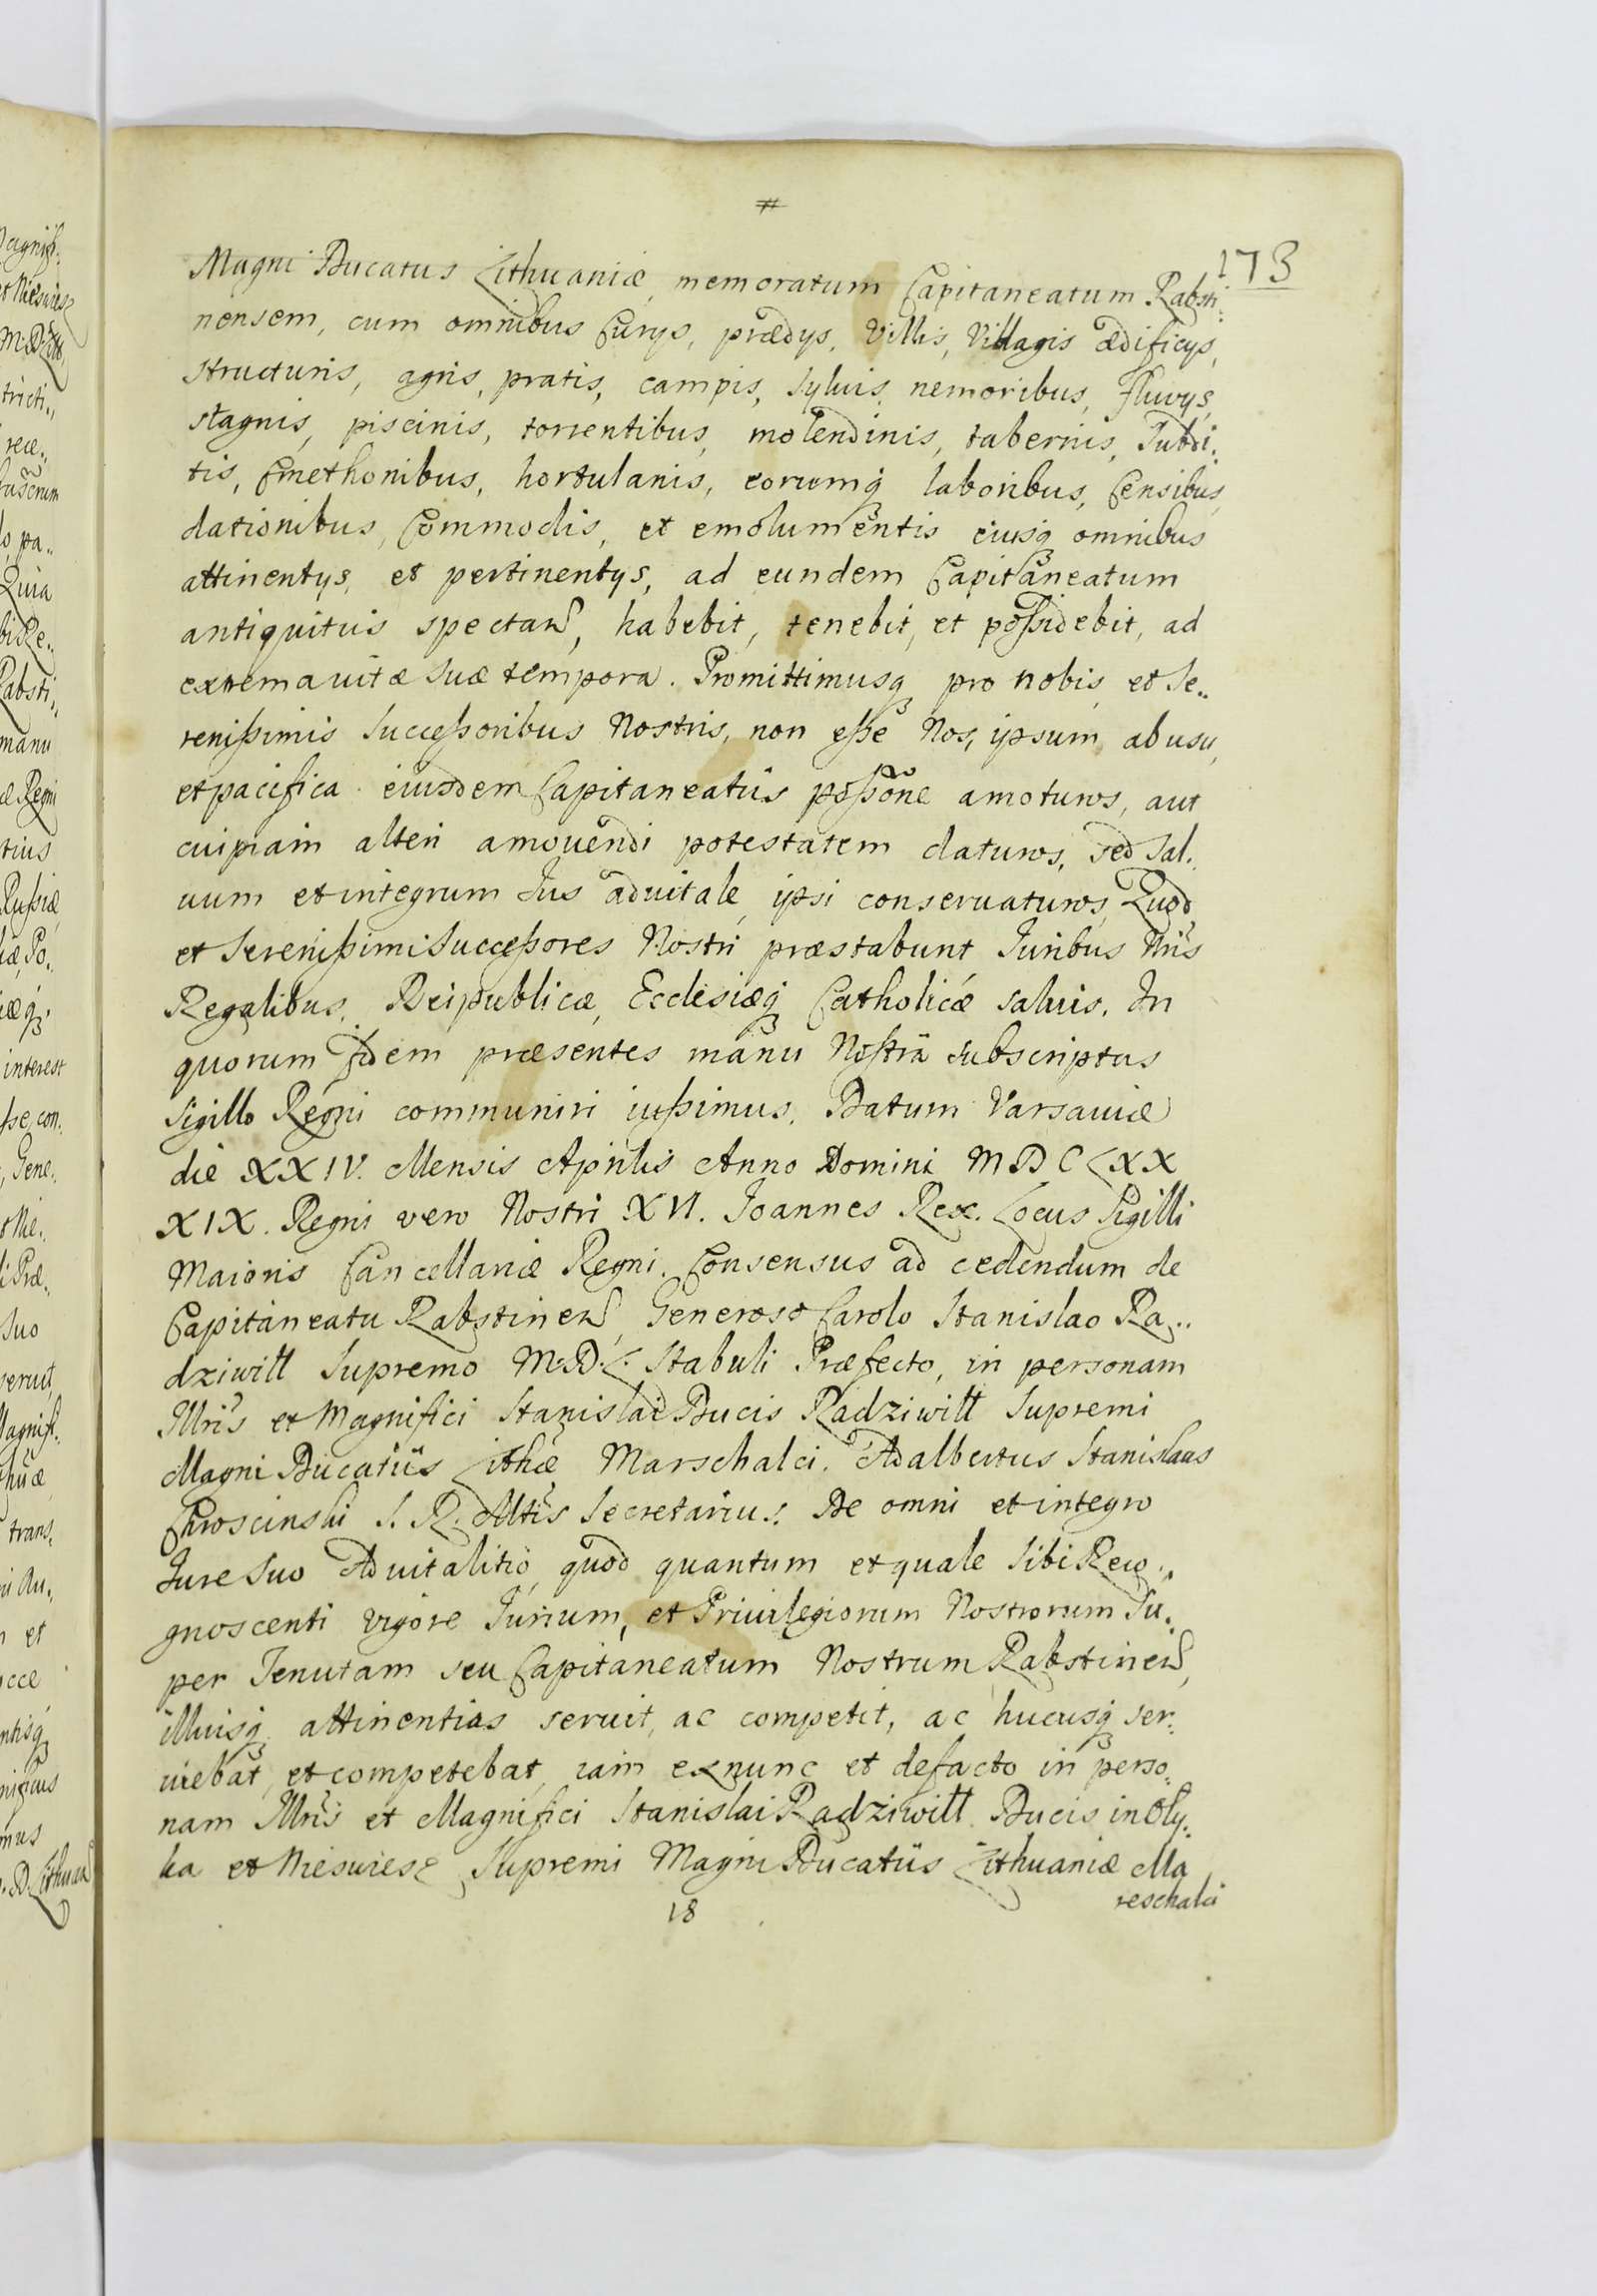 #
173
Magni Ducatus Lithuaniæ, memoratum Capitaneatum Rabsti,,
nensem, cum omnibus Curijs, prædijs, Villis, Villagis ædificijs,
structuris, agris, pratis, campis, syluis, nemoribus, fluvijs,
stagnis, piscinis, torrentibus, molendinis, tabernis, Subdi,,
tis, Cmethonibus, hortulanis, eorumq́ laboribus, Censibus,
dationibus, Commodis, et emolumentis eiusq́ omnibus
attinentijs, et pertinentijs, ad eundem Capitaneatum
antiquitus spectan, habebit, tenebit, et poßidebit, ad
extrema uitæ suæ tempora. Promittimusq́ pro nobis, et Se,,
renißimis Succeßoribus Nostris, non eße Nos, ipsum, ab usu,
et pacifica eiusdem Capitaneatûs poßone amoturos, aut
cuipiam alteri amouendi potestatem daturos, sed sal,
uum et integrum Jus aduitale, ipsi conseruaturos, Quod
et Serenißimi Succeßores Nostri præstabunt Juribus Nris
Regalibus, Reipublicæ, Ecclesiæq́ Catholicæ saluis. In
quorum fidem præsentes manu Nostrâ subscriptas
Sigillo Regni communiri iußimus. Datum Varsauiæ
die XXIV. Mensis Aprilis Anno Domini MDCLXX
XIX. Regni vero Nostri XVI. Joannes Rex. Locus Sigilli
Maioris Cancellariæ Regni. Consensus ad cedendum de
Capitaneatu Rabstinen, Generoso Carolo Stanislao Ra,,
dziwill Supremo M. D. L. Stabuli Præfecto, in personam
Illris et Magnifici Stanislai Ducis Radziwill Supremi
Magni Ducatûs Lithæ Marschalci. Adalbertus Stanislaus
Chroscinski S. R. Mtis Secretarius. De omni et integro
Jure suo Aduitalitio, quod quantum et quale sibi Reco,,
gnoscenti vigore Jurium, et Priuilegiorum Nostrorum Su,,
per Tenutam seu Capitaneatum Nostrum Rabstinen,
illiusq́ attinentias seruit, ac competit, ac hucusq́ ser,,
uiebat, et competebat, iam ex nunc et de facto in perso,,
nam Illris et Magnifici Stanislai Radziwill Ducis in Oly,,
ka et Nieswiesz Supremi Magni Ducatûs Lithuaniæ Ma
reschalci
18